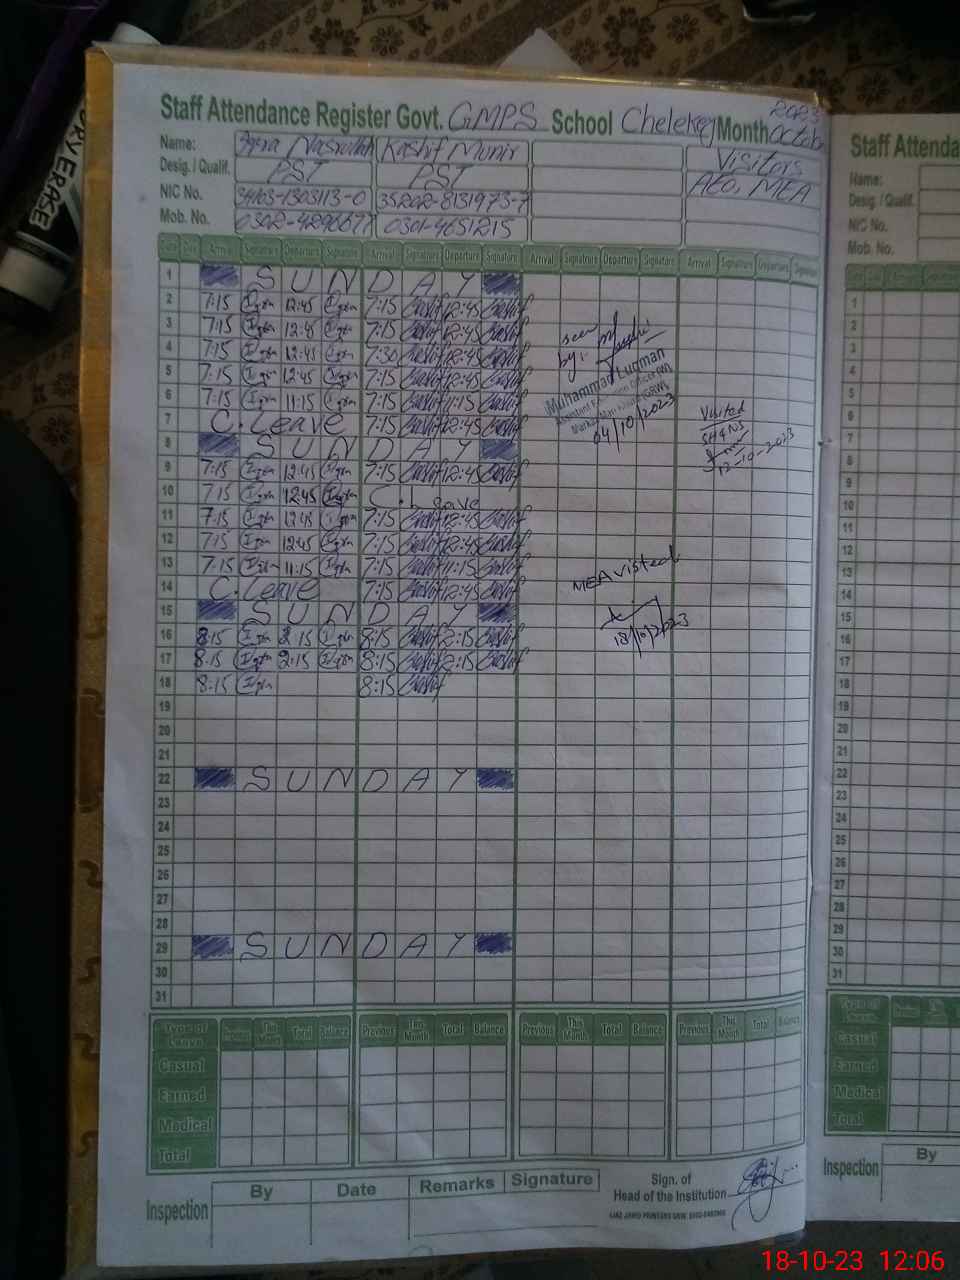 DRY ERASE
2023
Staff Attendance Register Govt. GMPS School Chelekey Month October
Name: Nasrullah Kashif Munir Visitors
Desig. / Qualif. PST PST AEO, MEA
NIC No. 34103-1303113-0 35202-8131973-7
Mob. No. 0302-4296677 0301-4651215
Date Day Arrival Signature Departure Signature Arrival Signature Departure Signature Arrival Signature Departure Signature Arrival Signature Departure Signature
1 SUNDAY
2 7:15 Iqra 12:45 Iqra 7:15 Kashif 12:45 Kashif
3 7:15 Iqra 12:45 Iqra 7:15 Kashif 12:45 Kashif
4 7:15 Iqra 12:45 Iqra 7:30 Kashif 12:45 Kashif
5 7:15 Iqra 12:45 Iqra 7:15 Kashif 12:45 Kashif
6 7:15 Iqra 11:15 Iqra 7:15 Kashif 11:15 Kashif
7 C. Leave 7:15 Kashif 12:45 Kashif
8 SUNDAY
9 7:15 Iqra 12:45 Iqra 7:15 Kashif 12:45 Kashif
10 7:15 Iqra 12:45 Iqra C. Leave
11 7:15 Iqra 12:45 Iqra 7:15 Kashif 12:45 Kashif
12 7:15 Iqra 12:45 Iqra 7:15 Kashif 12:45 Kashif
13 7:15 Iqra 11:15 Iqra 7:15 Kashif 11:15 Kashif
14 C. Leave 7:15 Kashif 12:45 Kashif
15 SUNDAY
16 8:15 Iqra 2:15 Iqra 8:15 Kashif 2:15 Kashif
17 8:15 Iqra 2:15 Iqra 8:15 Kashif 2:15 Kashif
18 8:15 Iqra 8:15 Kashif
19
20
21
22 SUNDAY
23
24
25
26
27
28
29 SUNDAY
30
31
seen
by:
Muhammad Luqman
Assistant Education Officer (W)
04/10/2023
Visited
12-10-2023
MEA visited
18/10/2023
Type of Leave Previous This Month Total Balance Previous This Month Total Balance Previous This Month Total Balance Previous This Month Total Balance
Casual
Earned
Medical
Total
Inspection By Date Remarks Signature
Sign. of
Head of the Institution
Staff Attenda
Name:
Desig. / Qualif.
NIC No.
Mob. No.
1
2
3
4
5
6
7
8
9
10
11
12
13
14
15
16
17
18
19
20
21
22
23
24
25
26
27
28
29
30
31
Type of Leave
Casual
Earned
Medical
Total
Inspection By
18-10-23 12:06